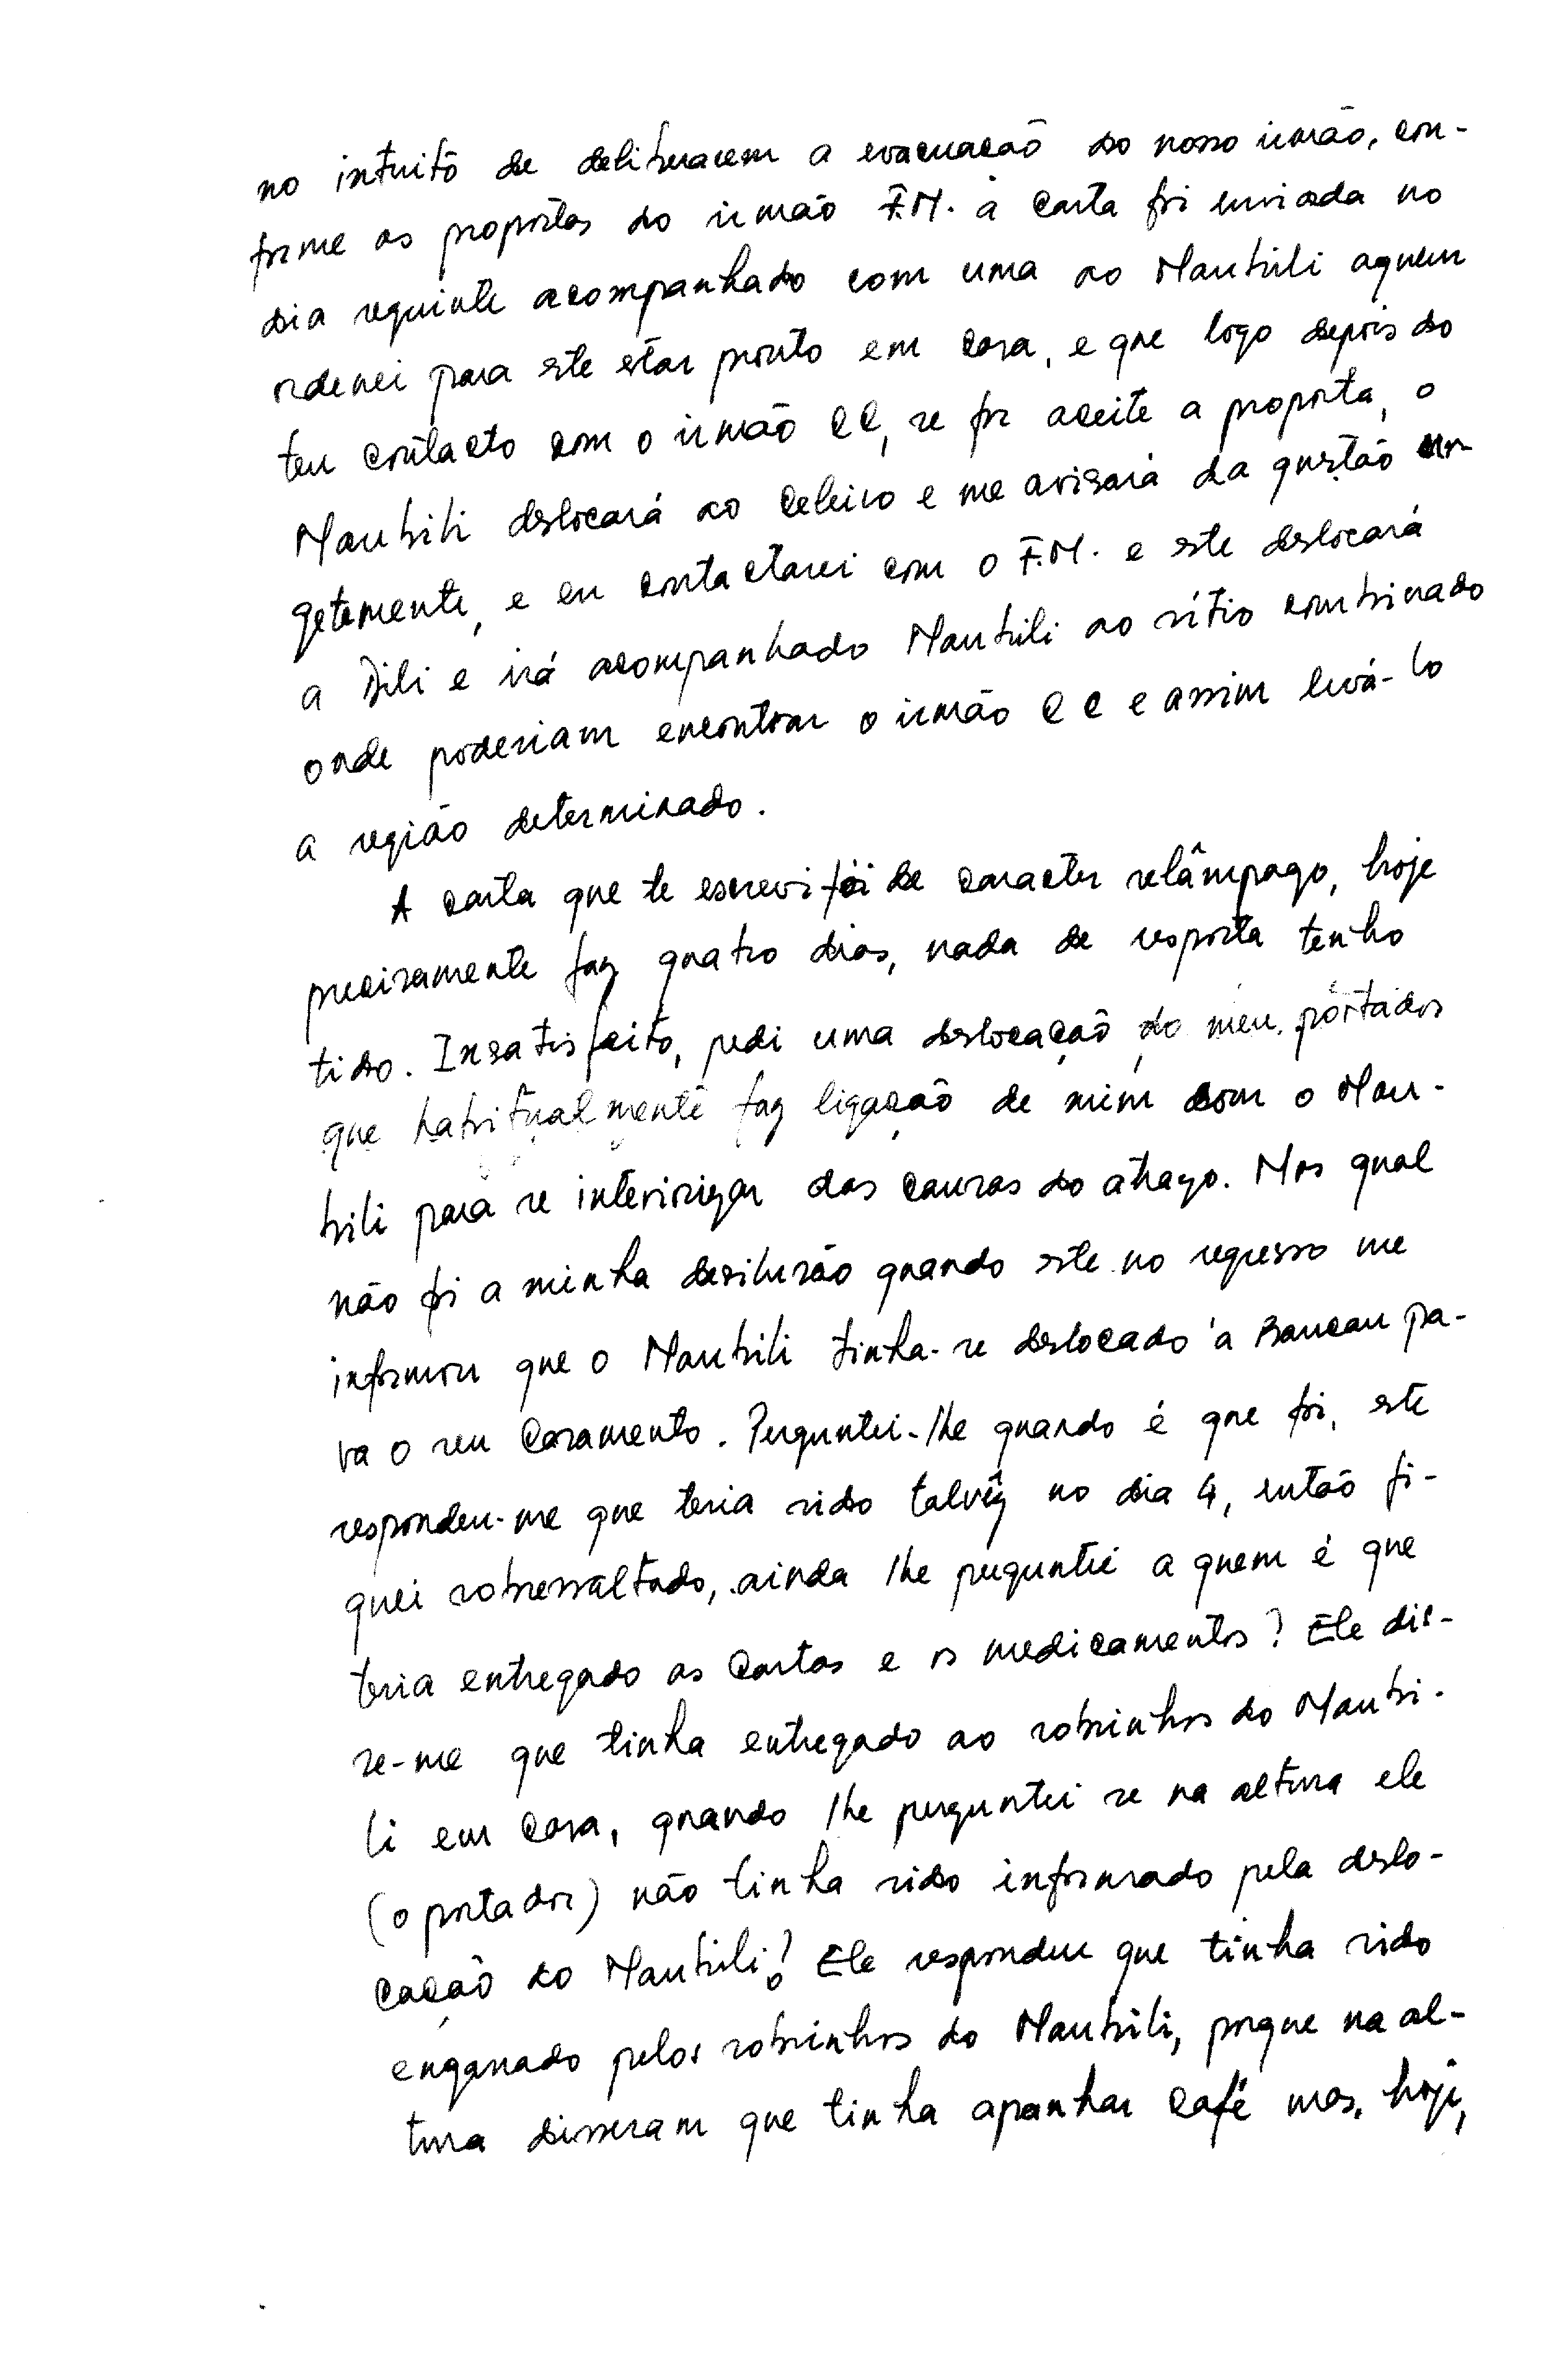 no intuito de deliberarem a evacuação do nosso irmão, con-
forme as propostas do irmão F.M. a carta foi enviada no
dia seguinte acompanhado com uma ao Maubili aquem
ordenei para este estar pronto em casa, e que logo depois do
teu contacto com o irmão CC, se for aceite a proposta, o
Maubili deslocará ao Celeiro e me avisará da questão ur-
getemente, e eu contactarei com o F.M. e este deslocará
a Dili e irá acompanhado Maubili ao sítio combinado
onde poderiam encontrar o irmão CC e assim levá-lo
a região determinado.
A carta que te escrevi foi de caracter relâmpago, hoje
precisamente faz quatro dias, nada de resposta tenho
tido. Insatisfeito, pedi uma deslocação do meu portador
que habitualmente faz ligação de mim com o Mau-
bili para se inteirizar das causas do atrazo. Mas qual
não foi a minha desilusão quando este no regresso me
informou que o Maubili tinha-se deslocado à Baucau pa-
ra o seu Casamento. Perguntei-lhe quando é que foi, este
respondeu-me que teria sido talvêz no dia 4, então fi-
quei sobressaltado, ainda lhe perguntei a quem é que
teria entregado as Cartas e os medicamentos? Ele dis-
se-me que tinha entregado ao sobrinhos do Maubi-
li em Casa, quando lhe perguntei se na altura ele
(o portador) não tinha sido informado pela deslo-
cação do Maubili? Ele respondeu que tinha sido
enganado pelos sobrinhos do Maubili, porque na al-
tura disseram que tinha apanhar Café mas, hoje,